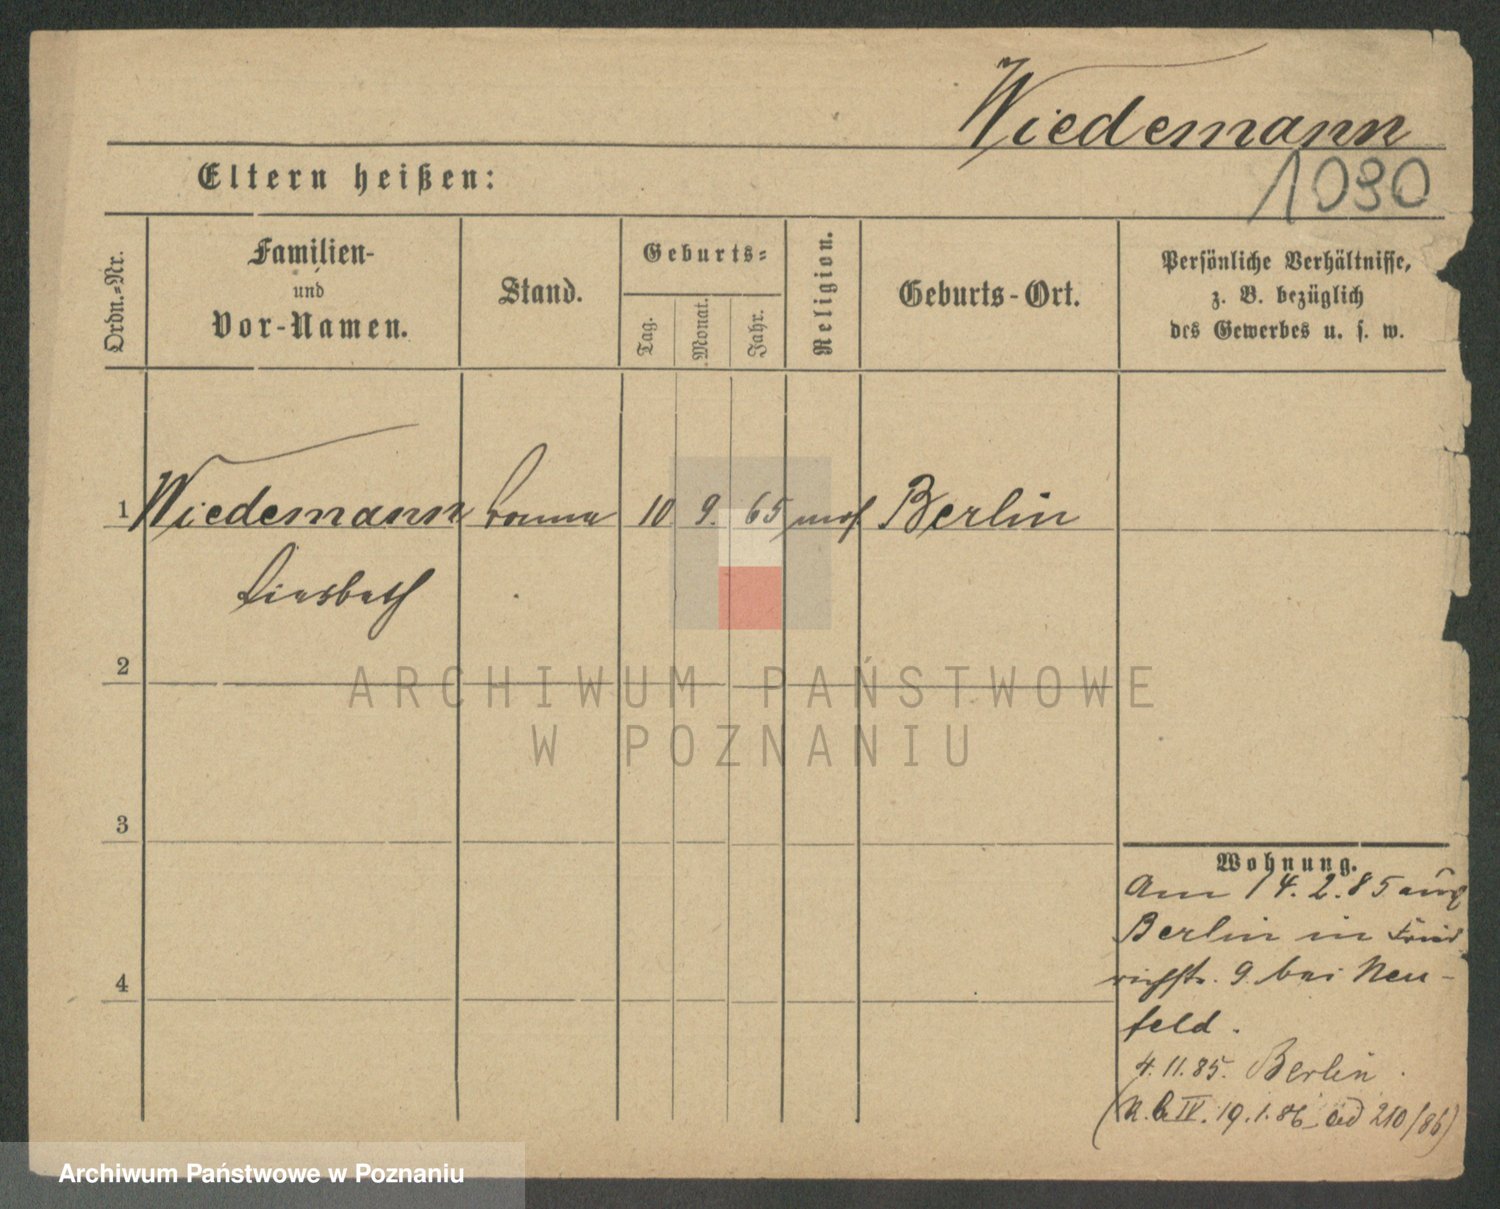 Wiedemann
1090
Eltern heißen:
Ordn.-Nr.
Familien-
und
Vor-Namen.
Stand.
Geburts-
Tag.
Monat.
Jahr.
Religion.
Geburts-Ort.
Persönliche Verhältnisse,
z. B. bezüglich
des Gewerbes u. s. w.
1 Wiedemann Bonne 10 9. 65 mos Berlin
Liesbeth
2
ARCHIWUM PAŃSTWOWE
W POZNANIU
3
4
Wohnung.
Am 14.2.85 aus
Berlin in Fried
richstr. 9. bei Neu-
feld.
4.11.85. Berlin.
IV. 19.1.86 ad 210/86)
Archiwum Państwowe w Poznaniu